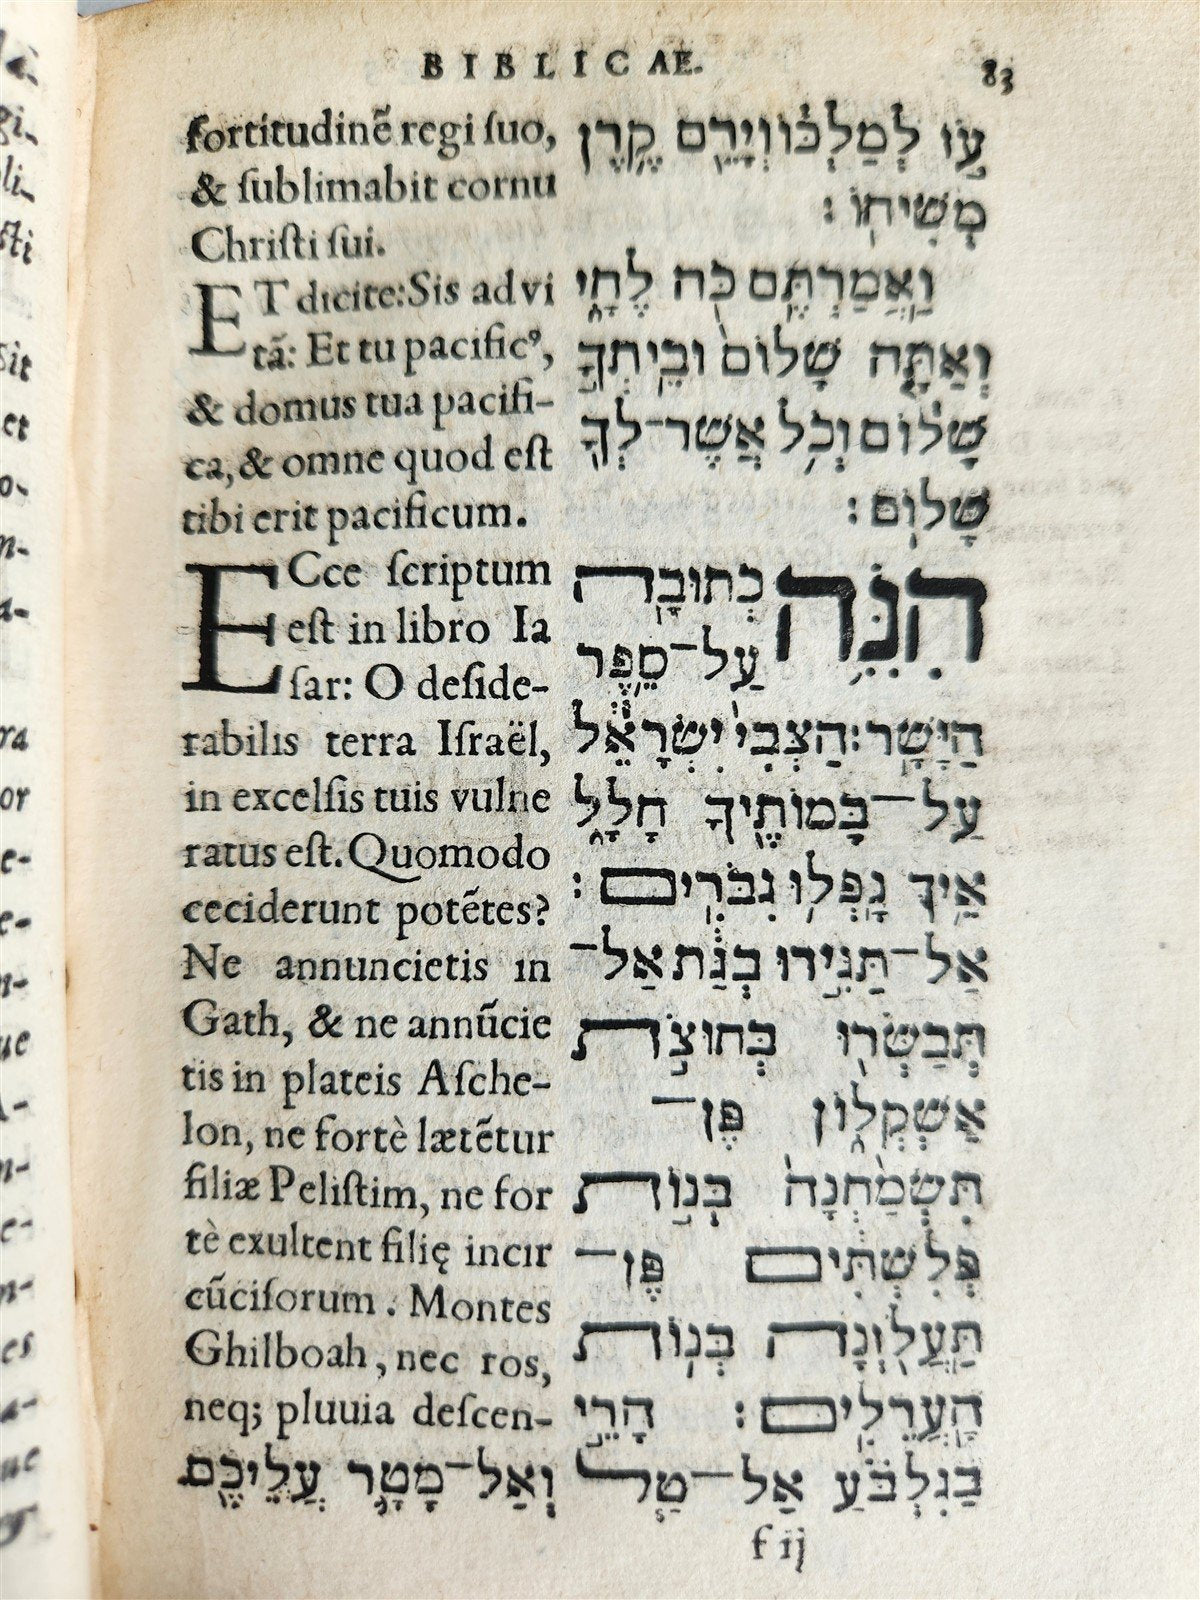 BIBLICAE. 83
fortitudinẽ regi suo,
& sublimabit cornu
Christi sui.
ET dicite: Sis ad vi
tã: Et tu pacificꝰ,
& domus tua pacifi-
ca, & omne quod est
tibi erit pacificum.
ECce scriptum
est in libro Ia
sar: O deside-
rabilis terra Israël,
in excelsis tuis vulne
ratus est. Quomodo
ceciderunt potẽtes?
Ne annuncietis in
Gath, & ne annũcie
tis in plateis Asche-
lon, ne fortè lætẽtur
filiæ Pelistim, ne for
tè exultent filię incir
cũcisorum. Montes
Ghilboah, nec ros,
neq; pluuia descen-
עֹ֣ז לְמַלְכּ֔וֹ וְיָרֵ֖ם קֶ֥רֶן
מְשִׁיחֽוֹ׃
וַאֲמַרְתֶּ֥ם כֹּ֖ה לֶחָ֑י
וְאַתָּ֤ה שָׁלוֹם֙ וּבֵיתְךָ֣
שָׁל֔וֹם וְכֹ֥ל אֲשֶׁר־לְךָ֖
שָׁלֽוֹם׃
הִנֵּ֥ה כְתוּבָ֖ה
עַל־סֵ֥פֶר
הַיָּשָֽׁר׃ הַצְּבִי֙ יִשְׂרָאֵ֔ל
עַל־בָּמוֹתֶ֖יךָ חָלָ֑ל
אֵ֖יךְ נָפְל֥וּ גִבֹּרִֽים׃
אַל־תַּגִּ֣ידוּ בְגַ֔ת אַל־
תְּבַשְּׂר֖וּ בְּחוּצֹ֣ת
אַשְׁקְל֑וֹן פֶּן־
תִּשְׂמַ֙חְנָה֙ בְּנ֣וֹת
פְּלִשְׁתִּ֔ים פֶּן־
תַּעֲלֹ֖זְנָה בְּנ֥וֹת
הָעֲרֵלִֽים׃ הָרֵ֣י
בַגִּלְבֹּ֗עַ אַל־טַ֧ל וְאַל־מָטָ֛ר עֲלֵיכֶ֖ם
f ij